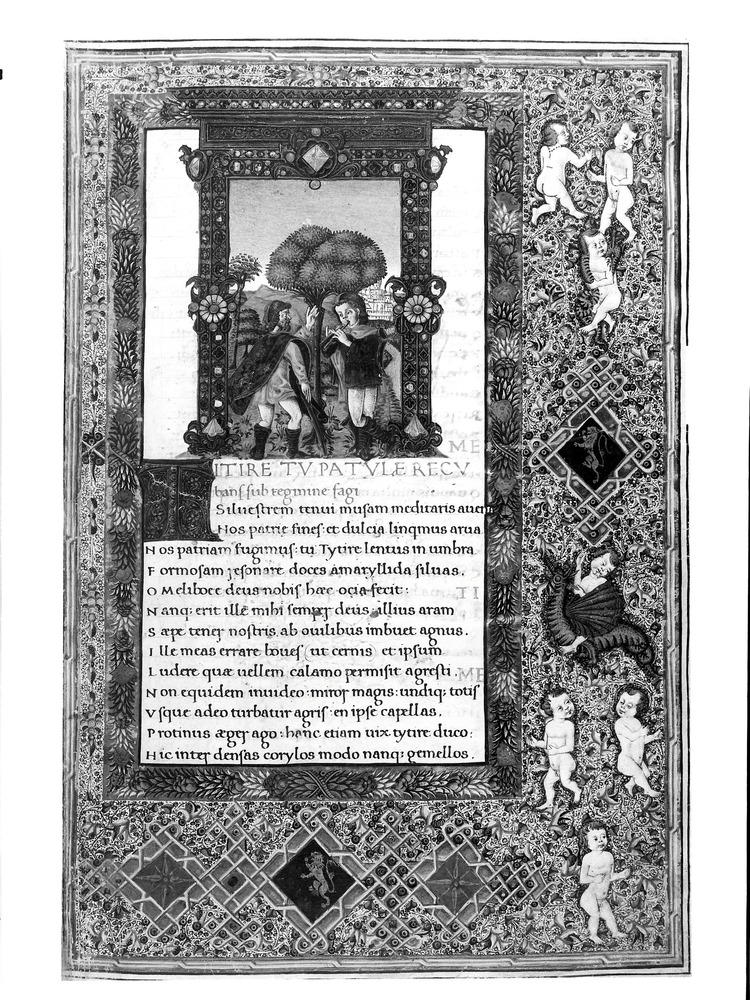 ME
TITIRE TV PATVLÆ RECV
banſ ſub tegmine fagi
Siluestrem tenui muſam meditaris auen
Nos patrie fineſ: et dulcia linqmus arua
Nos patriam fugimuſ: tu Tytire lentus in umbra
Formosam reſonare doces Amaryllida siluas.
O Meliboee deus nobiſ hæc ocia fecit:
Nanq; erit ille mihi ſemper deus: illius aram
Sæpe tener nostris ab ouilibus imbuet agnus.
TI
Ille meas errare boueſ (ut cernis) et ipſum
Ludere quæ uellem calamo permiſit agresti.
ME
Non equidem inuideo: miror magis: undiq; totiſ
Vſque adeo turbatur agriſ: en ipſe capellas.
Protinus æger ago: hanc etiam uix tytire duco:
Hic inter denſas corylos modo nanq; gemellos.